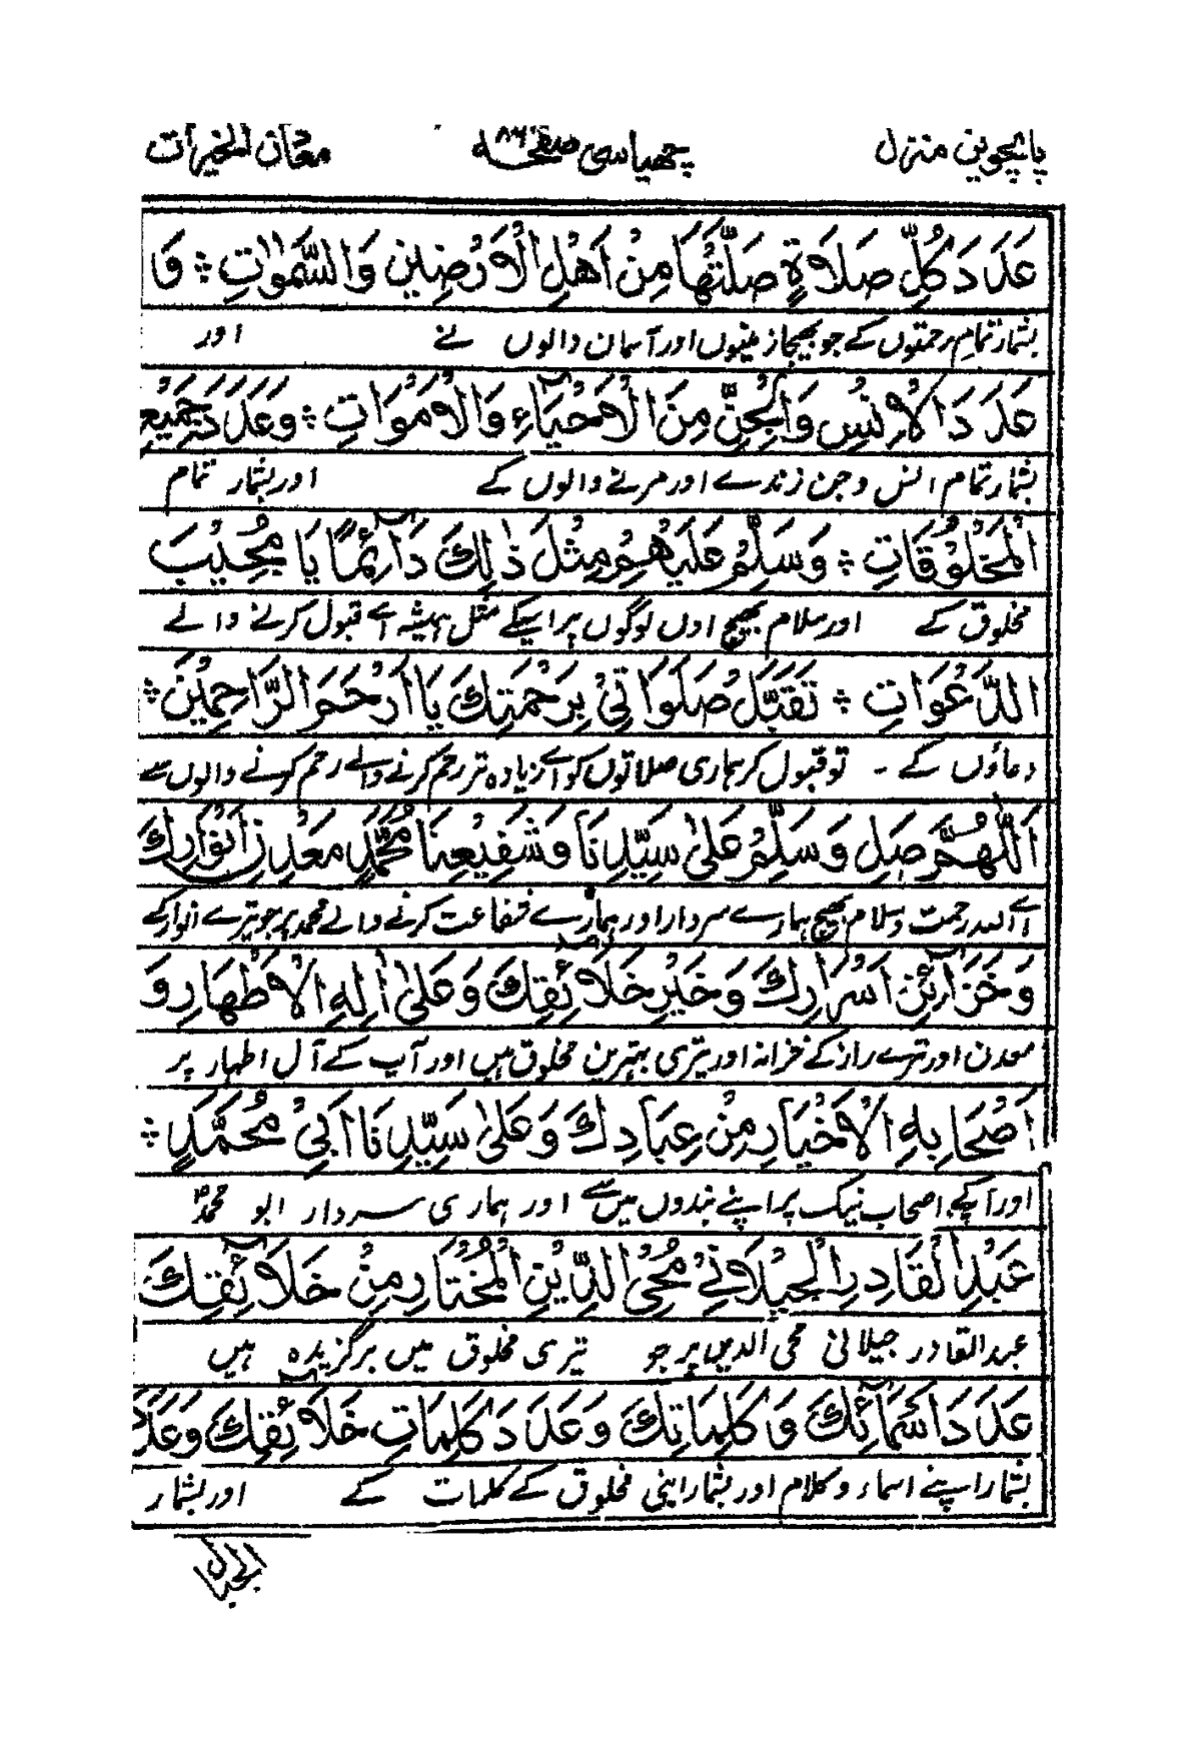 پانچویں منزل چھیاسی صفحہ ۸۶ معدن الخیرات
عَدَدَ كُلِّ صَلَاةٍ صَلَّتْهَا مِنْ اَهْلِ الْاَرَضِيْنَ وَالسَّمٰوٰتِ ؞ وَ
بشمار تمام رحمتوں کے جو بھیجا زمینوں اور آسمان والوں نے اور
عَدَدَ الْاِنْسِ وَالْجِنِّ مِنَ الْاَحْيَآءِ وَالْاَمْوَاتِ ؞ وَعَدَدَ جَمِيْعِ
بشمار تمام انس وجن زندے اور مرنے والوں کے اور بشمار تمام
الْمَخْلُوْقَاتِ ؞ وَسَلِّمْ عَلَيْهِمْ مِثْلَ ذٰلِكَ دَآئِمًا يَا مُجِيْبَ
مخلوق کے اور سلام بھیج اون لوگوں پر اسیکے مثل ہمیشہ اے قبول کرنے والے
الدَّعَوَاتِ ؞ تَقَبَّلْ صَلَوَاتِيْ بِرَحْمَتِكَ يَا اَرْحَمَ الرَّاحِمِيْنَ ؞
دعاؤں کے ۔ تو قبول کر ہماری صلاتوں کو اے زیادہ تر رحم کرنے والے رحم کرنے والوں سے
اَللّٰهُمَّ صَلِّ وَسَلِّمْ عَلٰى سَيِّدِنَا وَشَفِيْعِنَا مُحَمَّدٍ مَعْدِنِ اَنْوَارِكَ
اے اللہ رحمت وسلام بھیج ہمارے سردار اور ہمارے شفاعت کرنے والے محمد پر جو تیرے انوار کے
وَخَزَآئِنِ اَسْرَارِكَ وَخَيْرِ خَلَآئِقِكَ وَعَلٰى اٰلِهِ الْاَطْهَارِ وَ
معدن اور تیرے راز کے خزانہ اور تیری بہترین مخلوق ہیں اور آپ کے آل اطہار پر
اَصْحَابِهِ الْاَخْيَارِ مِنْ عِبَادِكَ وَعَلٰى سَيِّدِنَا اَبِيْ مُحَمَّدٍ ؞
اور آپکے اصحاب نیک پر اپنے بندوں میں سے اور ہماری سردار ابو محمدؐ
عَبْدِ الْقَادِرِ الْجِيْلَانِيْ مُحْيِ الدِّيْنِ الْمُخْتَارِ مِنْ خَلَآئِقِكَ
عبد القادر جیلانی محی الدین پر جو تیری مخلوق میں برگزیدہ ہیں
عَدَدَ اَسْمَآئِكَ وَكَلِمَاتِكَ وَعَدَدَ كَلِمَاتِ خَلَآئِقِكَ وَعَدَدَ
بشمار اپنے اسماء و کلام اور بشمار اپنی مخلوق کے کلمات کے اور بشمار
الجبال